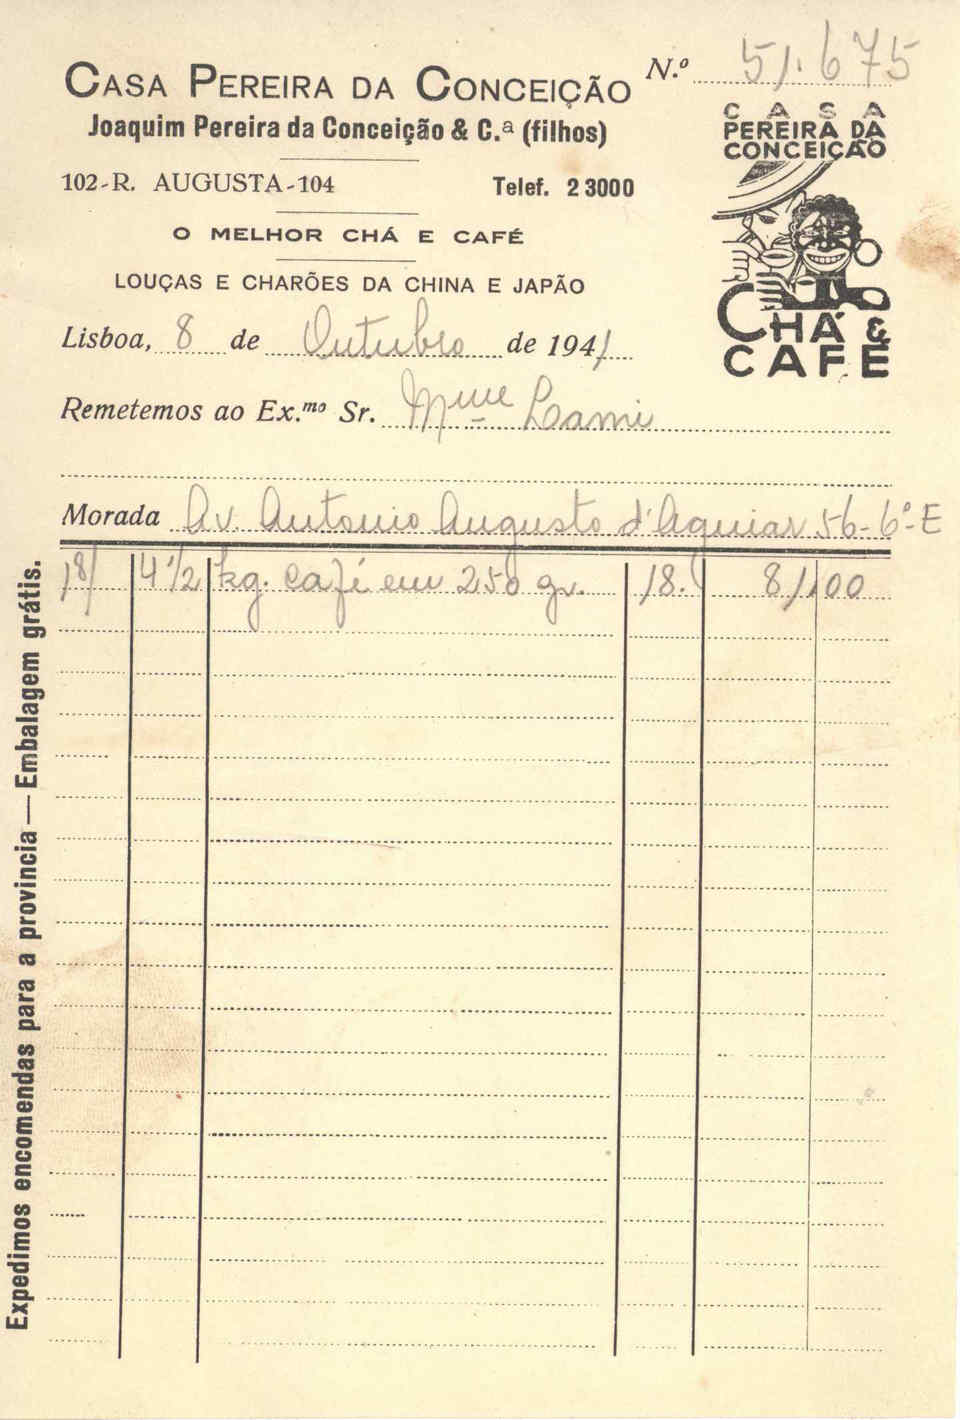 CASA PEREIRA DA CONCEIÇÃO
Joaquim Pereira da Conceição & C.ª (filhos)
102-R. AUGUSTA-104 Telef. 2 3000
O MELHOR CHÁ E CAFÉ
LOUÇAS E CHARÕES DA CHINA E JAPÃO
N.º 51.675
CASA
PEREIRA DA
CONCEIÇÃO
CHÁ &
CAFÉ
Lisboa, 8 de Outubro de 1941
Remetemos ao Ex.mo Sr. Mme Lami
Morada Av. Antonio Augusto d'Aguiar 56-6º-E
18/ 4 1/2 kg. café em 250 gr. 18. 81,00
Expedimos encomendas para a provincia — Embalagem grátis.